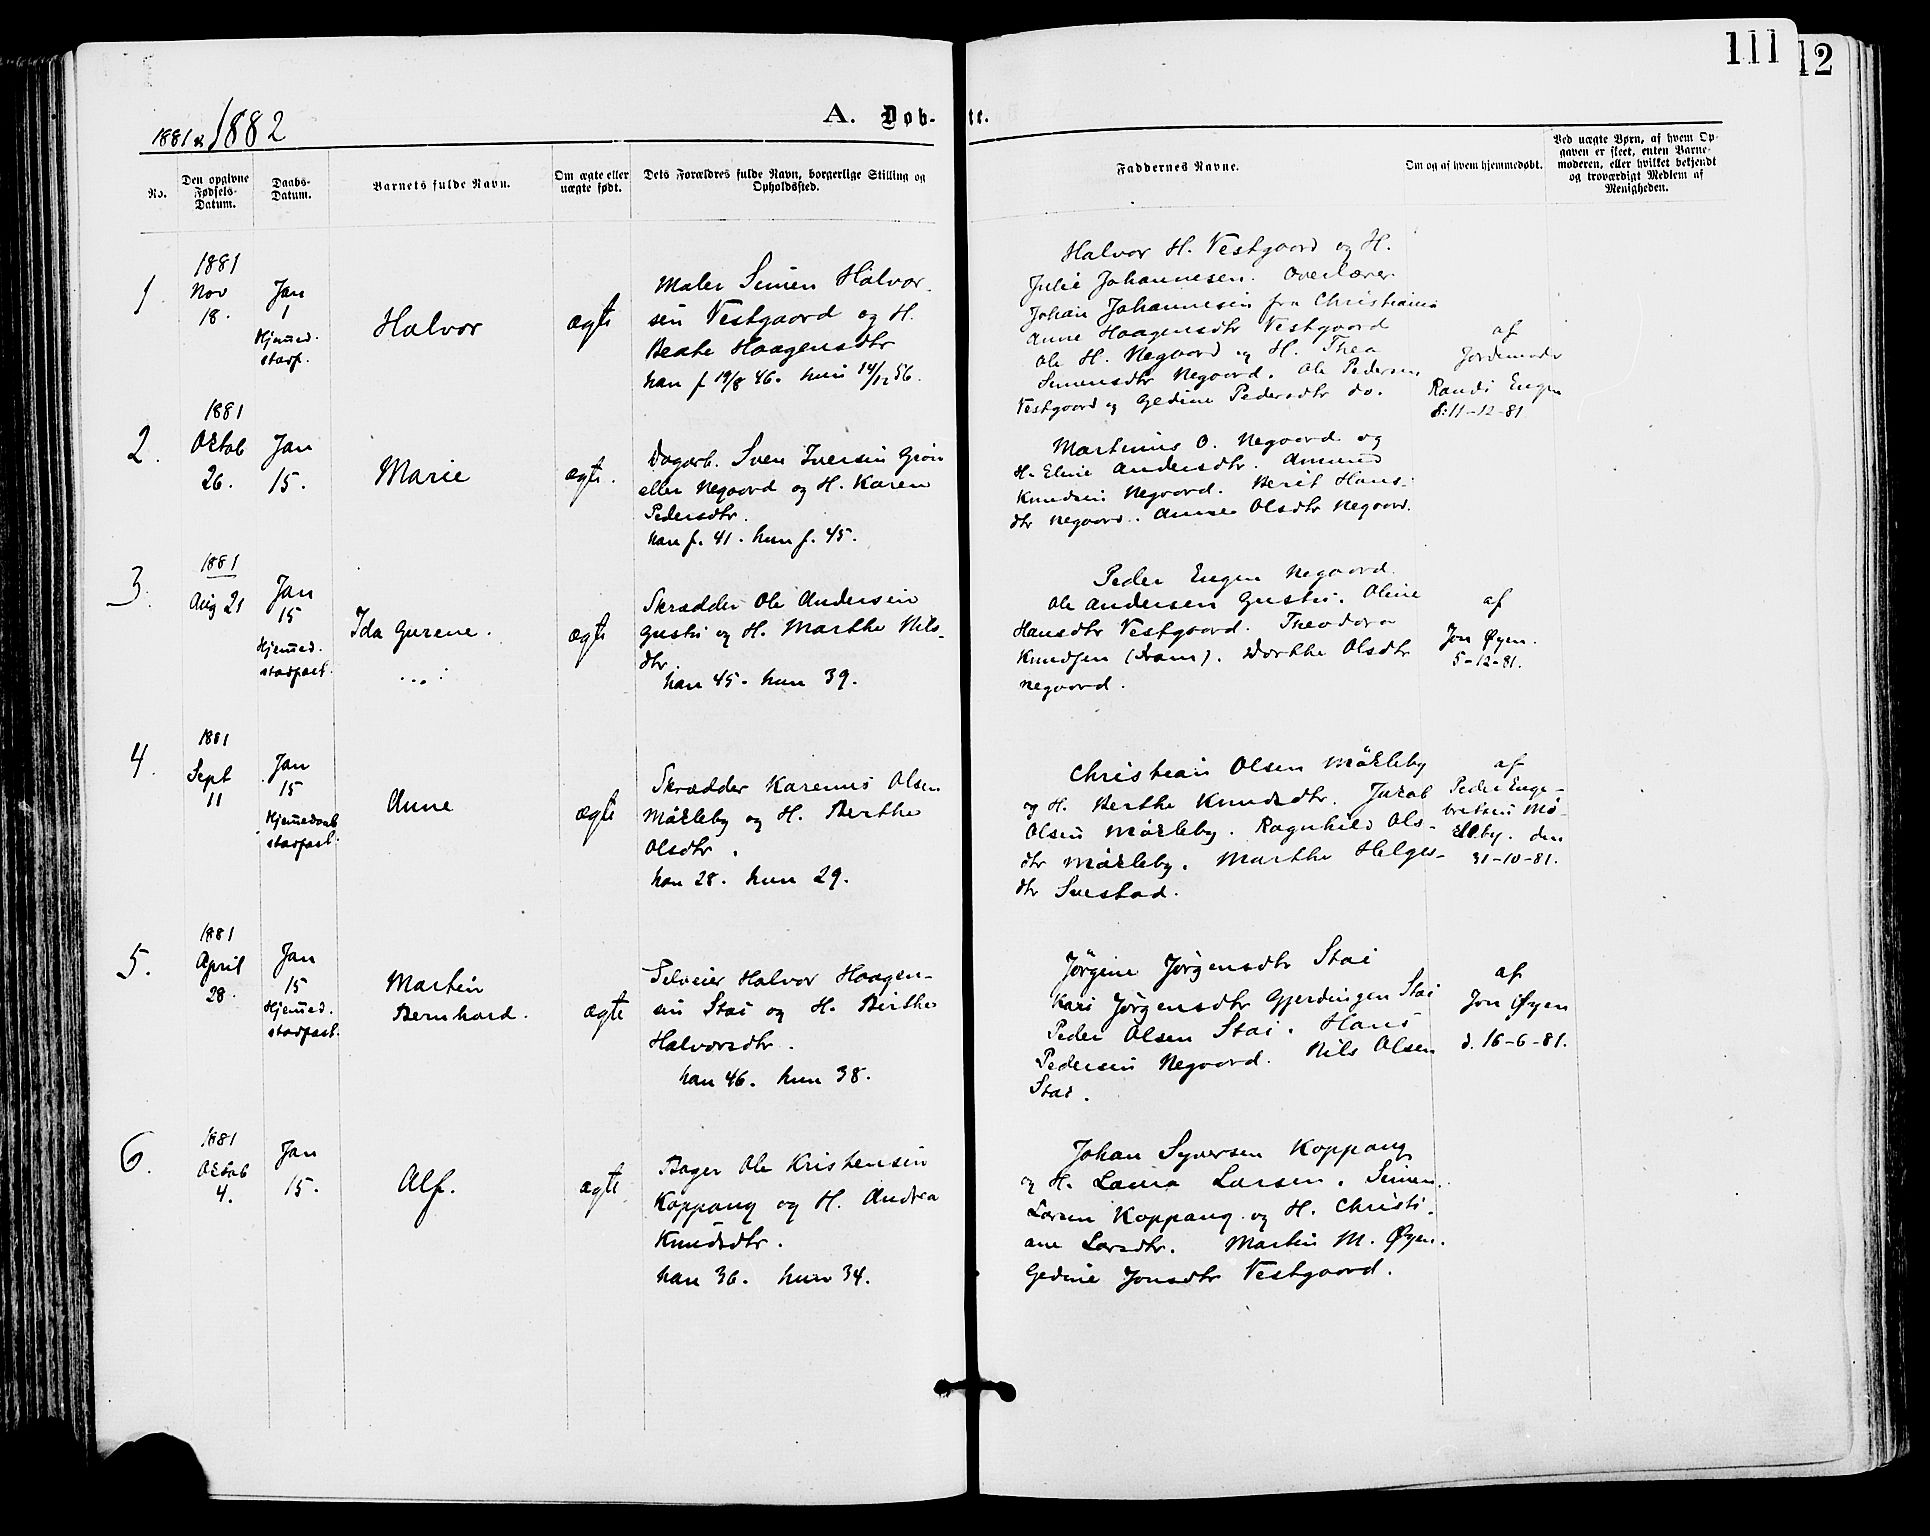 111
12
1881 & 1882
A. Døb-
te.
No.
Den opgivne
Fødsels-
Datum.
Daabs-
Datum.
Barnets fulde Navn.
Om ægte eller
uægte født.
Dets Forældres fulde Navn, borgerlige Stilling og
Opholdssted.
Faddernes Navne.
Om og af hvem hjemmedøbt.
Ved uægte Børn, af hvem Op-
gaven er skeet, enten Barne-
moderen, eller hvilket bekjendt
og troværdigt Medlem af
Menigheden.
1.
1881
Nov
18.
Jan
1
Hjemmed.
stadf.
Halvor
ægte
Maler Simen Halvor-
sen Vestgaard og H.
Beate Haagensdtr
han f 19/8 46. hun 14/12 56.
Halvor H. Vestgaard og H.
Julie Johannesen. Overlærer
Johan Johannesen fra Christiania
Anne Haagensdtr Vestgaard
Ole H. Negaard og H. Thea
Simensdtr Negaard. Ole Pedersen
Vestgaard og Gedine Pedersdtr do.
af
Jordemoder
Randi Engen
d: 11-12-81
2.
1881
Oktob
26.
Jan
15.
Marie
ægte.
Dagarb. Sven Iversen Grön
eller Negaard og H. Karen
Pedersdtr.
han f. 41. hun f. 45.
Martinus O. Negaard og
H. Eline Andersdtr. Amund
Knudsen Negaard. Berit Hans-
dtr Negaard. Anne Olsdtr Negaard.
3.
1881
Aug 21
Jan
15
Hjemmed.
stadfæst.
Ida Gurene.
ægte
Skrædder Ole Andersen
Gusta og H. Marthe Nils-
dtr.
han 45. hun 39.
Peder Engen Negaard.
Ole Andersen Gusta. Oline
Hansdtr Vestgaard. Theodora
Knudsen (Dram). Dorthe Olsdtr
Negaard.
af
Jon Øyen.
5-12-81.
4.
1881
Sept
11
Jan
15
Hjemmedøbt
stadfæst.
Anne
ægte
Skrædder Karenus Olsen
Mökleby og H. Berthe
Olsdtr.
han 28. hun 29.
Christian Olsen Mökleby
og H. Berthe Knudsdtr. Jakob
Olsen Mökleby. Ragnhild Ols-
dtr Mökleby. Marthe Helges-
dtr Snestad.
af
Peder Enge-
bretsen Mö-
kleby. den
31-10-81.
5.
1881
April
28.
Jan
15
Hjemmed.
stadfæst.
Martin
Bernhard.
ægte
Selveier Halvor Haagen-
sen Stai og H. Birthe
Halvorsdtr.
han 46. hun 38.
Jörgine Jörgensdtr Stai
Kari Jörgensdtr Gjerdingen Stai
Peder Olsen Stai. Hans
Pedersen Negaard. Nils Olsen
Stai.
af
Jon Øyen
d. 16-6-81.
6.
1881
Oktob
4.
Jan
15.
Alf.
ægte
Bager Ole Kristensen
Koppang og H. Andrea
Knudsdtr.
han 36. hun 34.
Johan Syversen Koppang
og H. Laura Larsen. Simen
Larsen Koppang og H. Christi-
ane Larsdtr. Martin M. Øyen.
Gedine Jonsdtr Vestgaard.